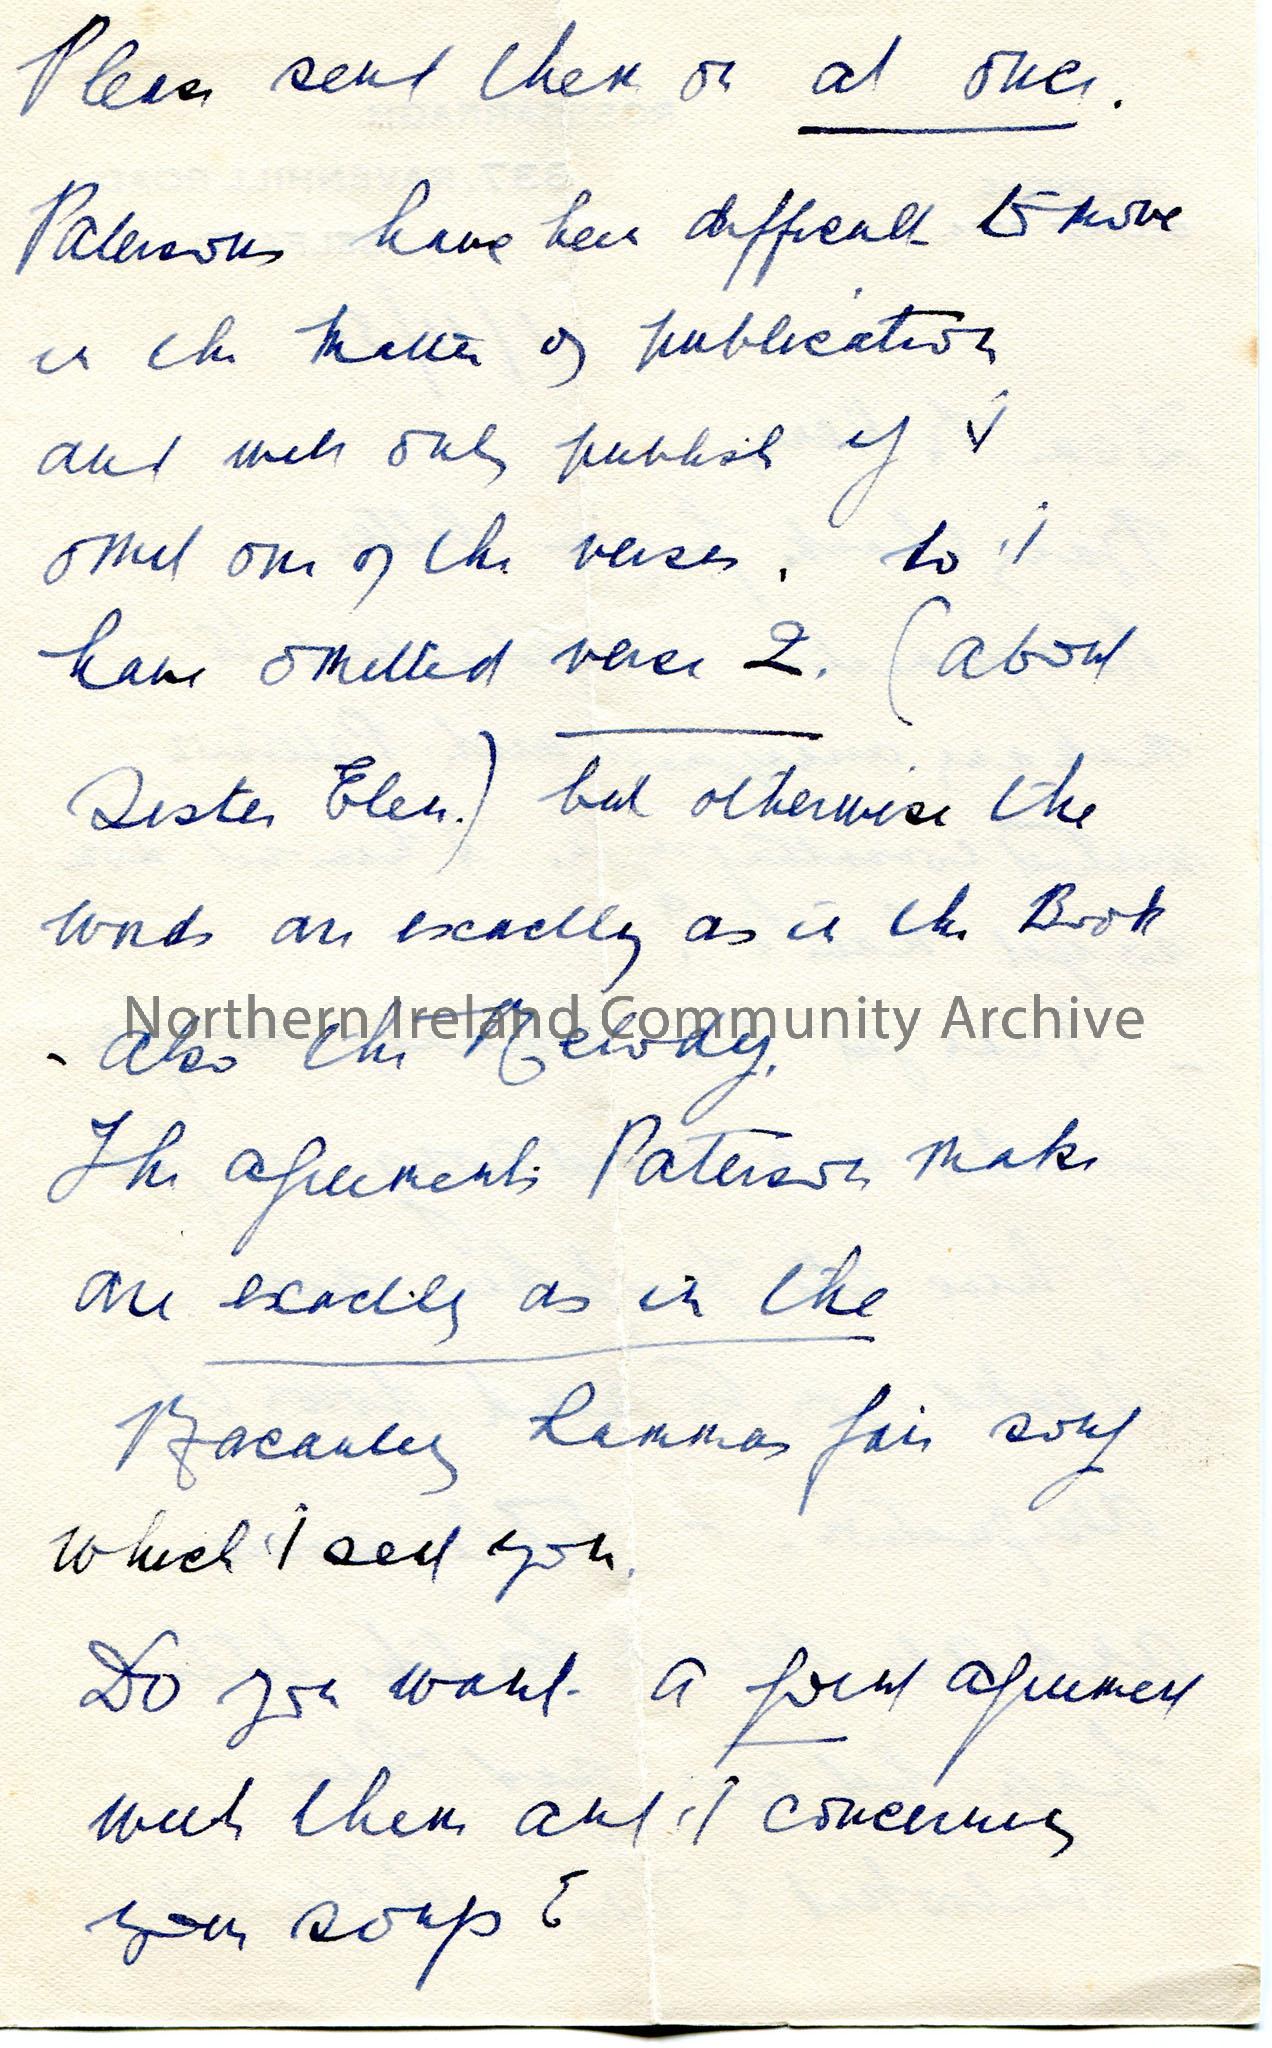 Please send them on at once.
Patersons have been difficult to move
in the matter of publication
and will only publish if I
omit one of the verses. So I
have omitted verse 2. (about
Sister Elen.) but otherwise the
words are exactly as in the Book
Northern Ireland Community Archive
also the Melody.
The agreements Paterson make
are exactly as in the
Macauley Lammas fair song
which I sent you.
Do you want a joint agreement
with them and I concerning
your songs?